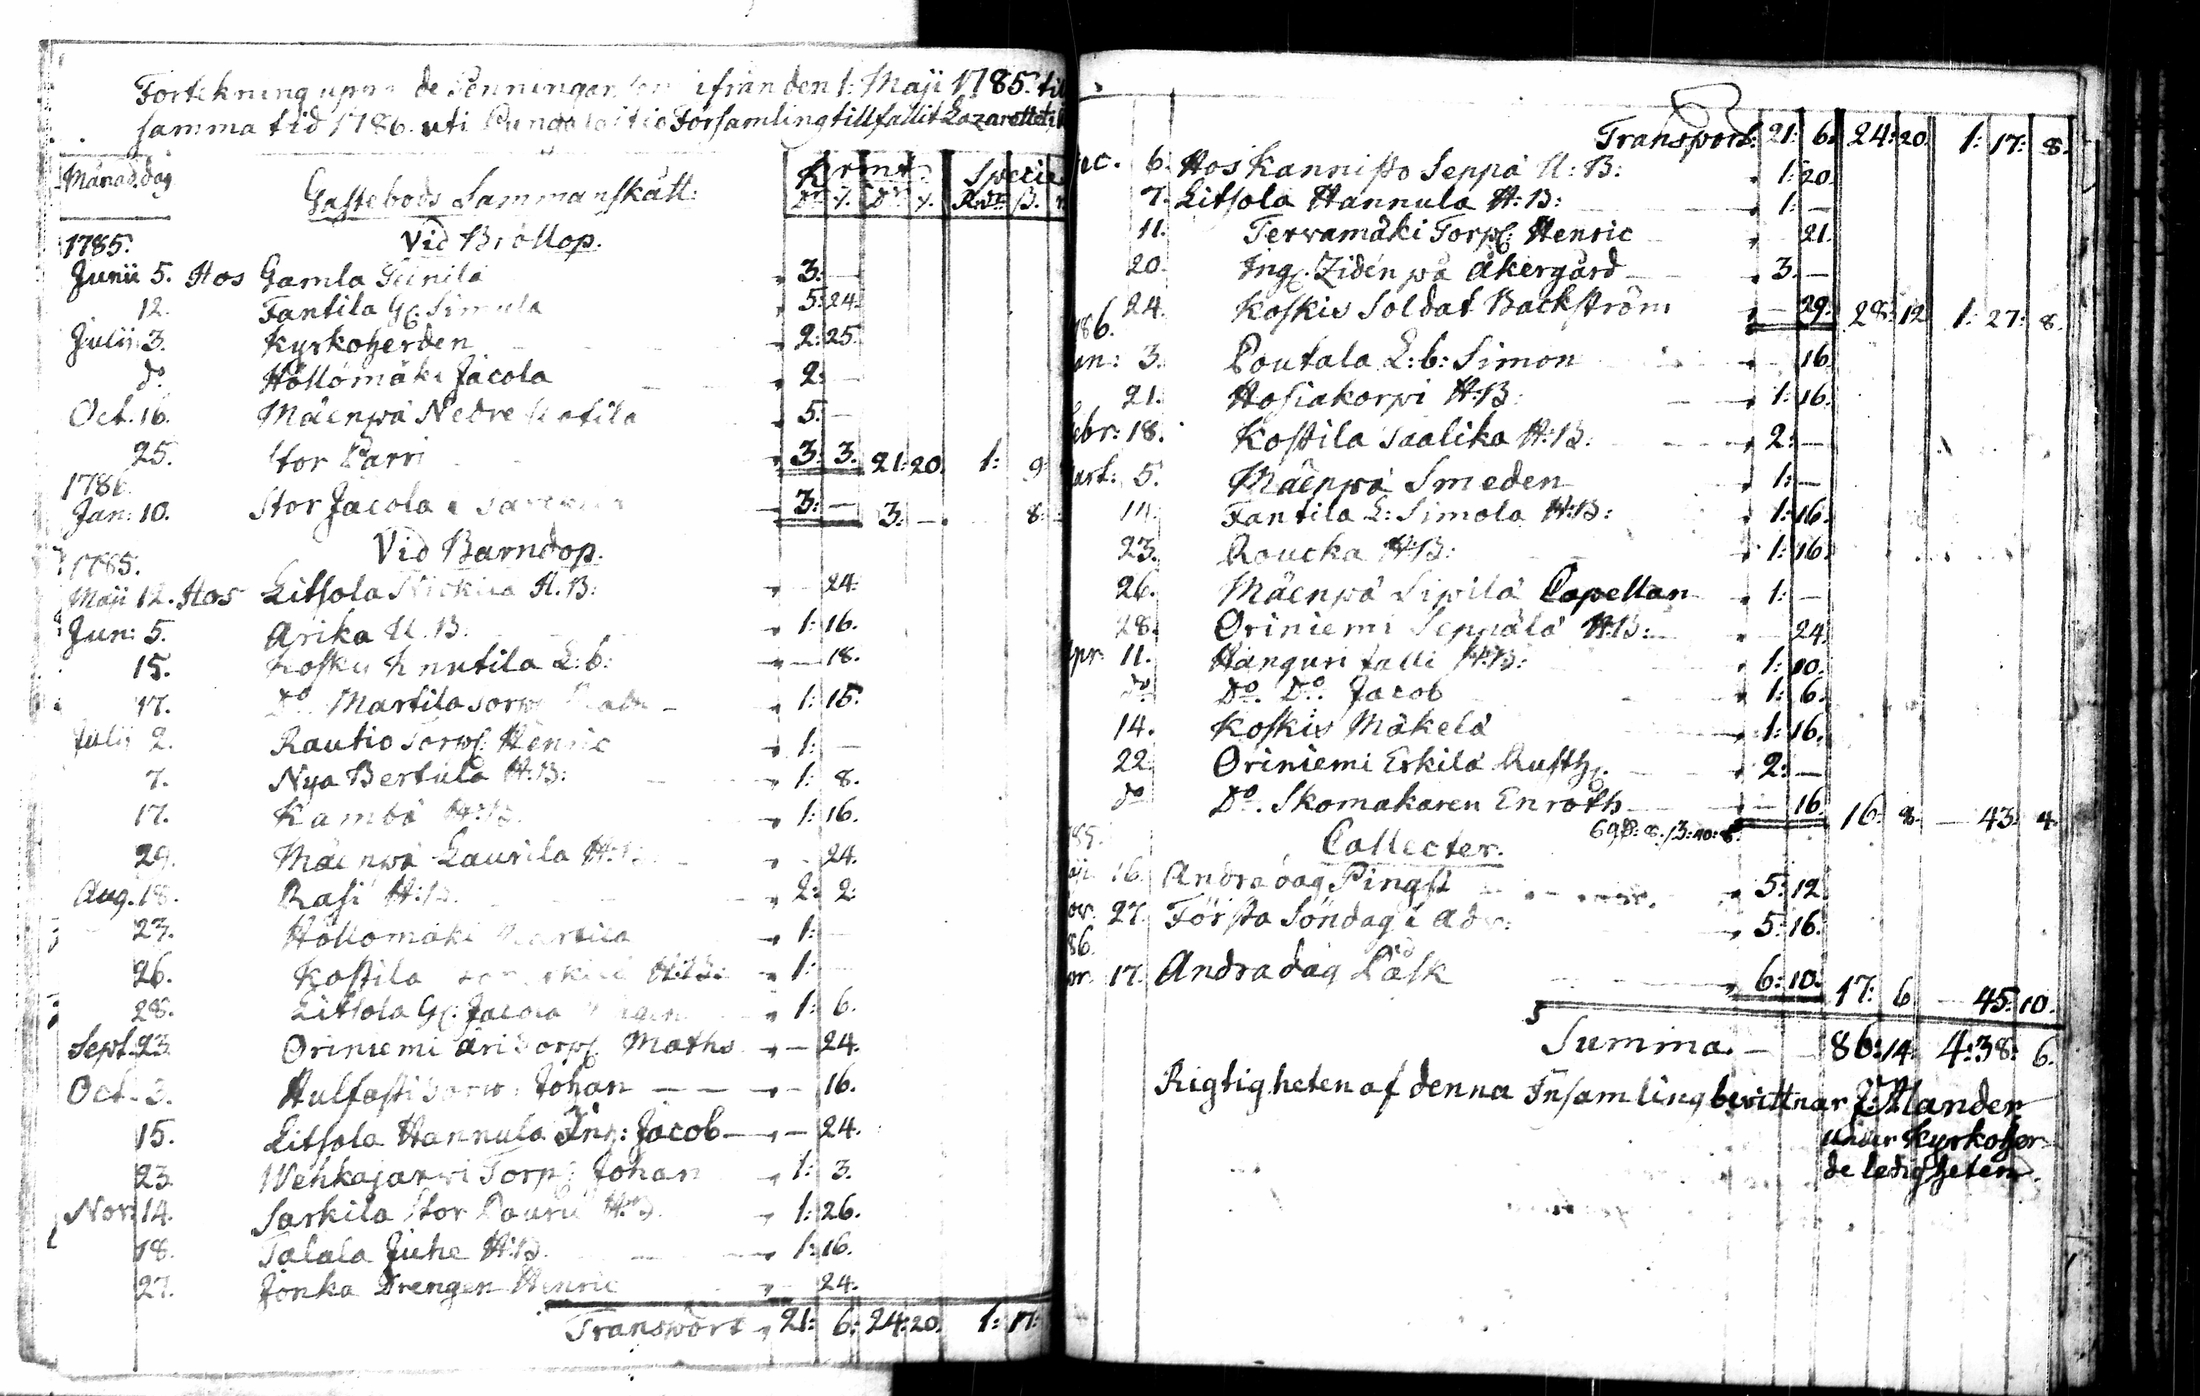 Förtekning uppå de Penningar som ifrån den 1. Maji 1785. til
samma tid 1786. uti Församling tillfallit Lazarettet i
Månad. dag
Gästebods Sammanskått:
Krmt. Specie
Dr. Y. Dr. Y. Rdr. ß.
1785. Vid Bröllop.
Junii 5. Hos Gamla 3: —
12. Fantila G: Simula 5: 24.
Julii 3. Kyrkoherden 2: 25.
do. Höllömäki Jacola 2: —
Oct. 16. Mäenpä Nedre 5: —
25. Stor Parri 3: 3. 21: 20. 1: 9:
1786.
Jan: 10. Stor Jacola 3: — 3: — 8:
Vid Barndop.
1785.
Maji 12. Hos Litsola H. B: — 24.
Jun: 5. Arika U. B: 1: 16.
15. Knutila L: b: — 18.
17. Do. Martila 1: 15.
Julii 2. Rautio Torp: Henric 1: —
7. Nya Bertula H:B: 1: 8.
17. Kamba H:B. 1: 16.
29. Mäenpä Laurila H:B. — 24.
Aug. 18. Rasi H:B. 2: 2:
23. Höllomäki Martila 1: —
26. Kostila H:B: 1: —
28. Litsola G: Jacola 1: 6.
Sept. 23. Oriniemi Äri Torp: Maths — 24.
Oct. 3. Hulfasti Torp: Johan — 16.
15. Litsola Hannula Inh: Jacob — 24.
23. Wehkajarwi Torp: Johan 1: 3.
Nov. 14. Sarkila Stor Pauru H:B. 1: 26.
18. Talala Juhe H:B. 1: 16.
27. Jonka Drengen Henric — 24.
Transport 21: 6: 24: 20. 1: 17:
Transport: 21: 6. 24: 20. 1: 17: 8.
ec. 6. Hos Kannisto Seppä U: B: 1: 20.
7. Litsola Hannula H:B: 1: —
11. Tervamäki Torp: Henric — 21.
20. Ing: Zidén på Åkergård 3. —
24. Koskis Soldat Backström — 29. 28: 12. 1: 27: 8.
86.
an: 3. Poutala L: b: Simon — 16.
21. Hosiakorpi H:B: 1: 16.
ebr: 18. Kostila Saalika H:B: 2: —
art: 5. Mäenpä Smeden 1: —
14. Fantila L: Simola H:B: 1: 16.
23. Roucka H:B: 1: 16.
26. Mäenpä Sipilä Capellan 1: —
28. Oriniemi Seppälä H:B: — 24.
pr: 11. Hanguritalli H:B: 1: 10.
do Do. Do. Jacob 1: 6.
14. Koskis Mäkelä 1: 16.
22. Oriniemi Erkilä Rusth: 2: —
do Do. Skomakaren Enroth — 16. 16: 8. — 43: 4.
85. Collecter.
16. Andra dag Pingst 5: 12.
ov. 27. Första Söndag i Adv: 5: 16.
86.
pr. 17. Andra dag Påsk 6: 10. 17: 6 — 45: 10.
Summa. — 86: 14. 4: 38: 6.
Rigtigheten af denna Insamling bevittnar J: Alander
under Kyrkoher-
de ledigheten.